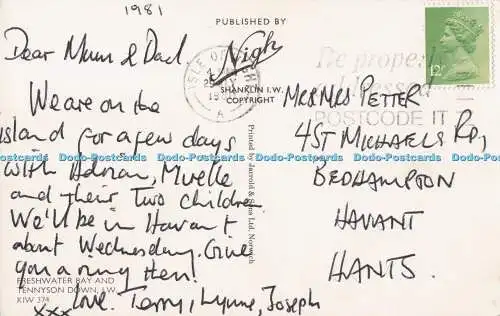 1981
PUBLISHED BY
Nigh
SHANKLIN I.W.
COPYRIGHT
Dear Mum & Dad
We are on the
island for a few days
with Adrian, 
and their two children
We'll be in Havant
about Wednesday. Give
you a ring then!
Love. Terry, Lynne, Joseph
xxx
FRESHWATER BAY AND
TENNYSON DOWN, I.W.
KIW 374
Printed by Jarrold & Sons Ltd, Norwich
ISLE OF
A
Be properly
addressed
POSTCODE IT
12
MR & MRS PETTER
4 ST MICHAELS RD,
BEDHAMPTON
HAVANT
HANTS.
Dodo-Postcards Dodo-Postcards Dodo-Postcards Dodo-Postcards Dodo-Postcards Dodo-Postcards